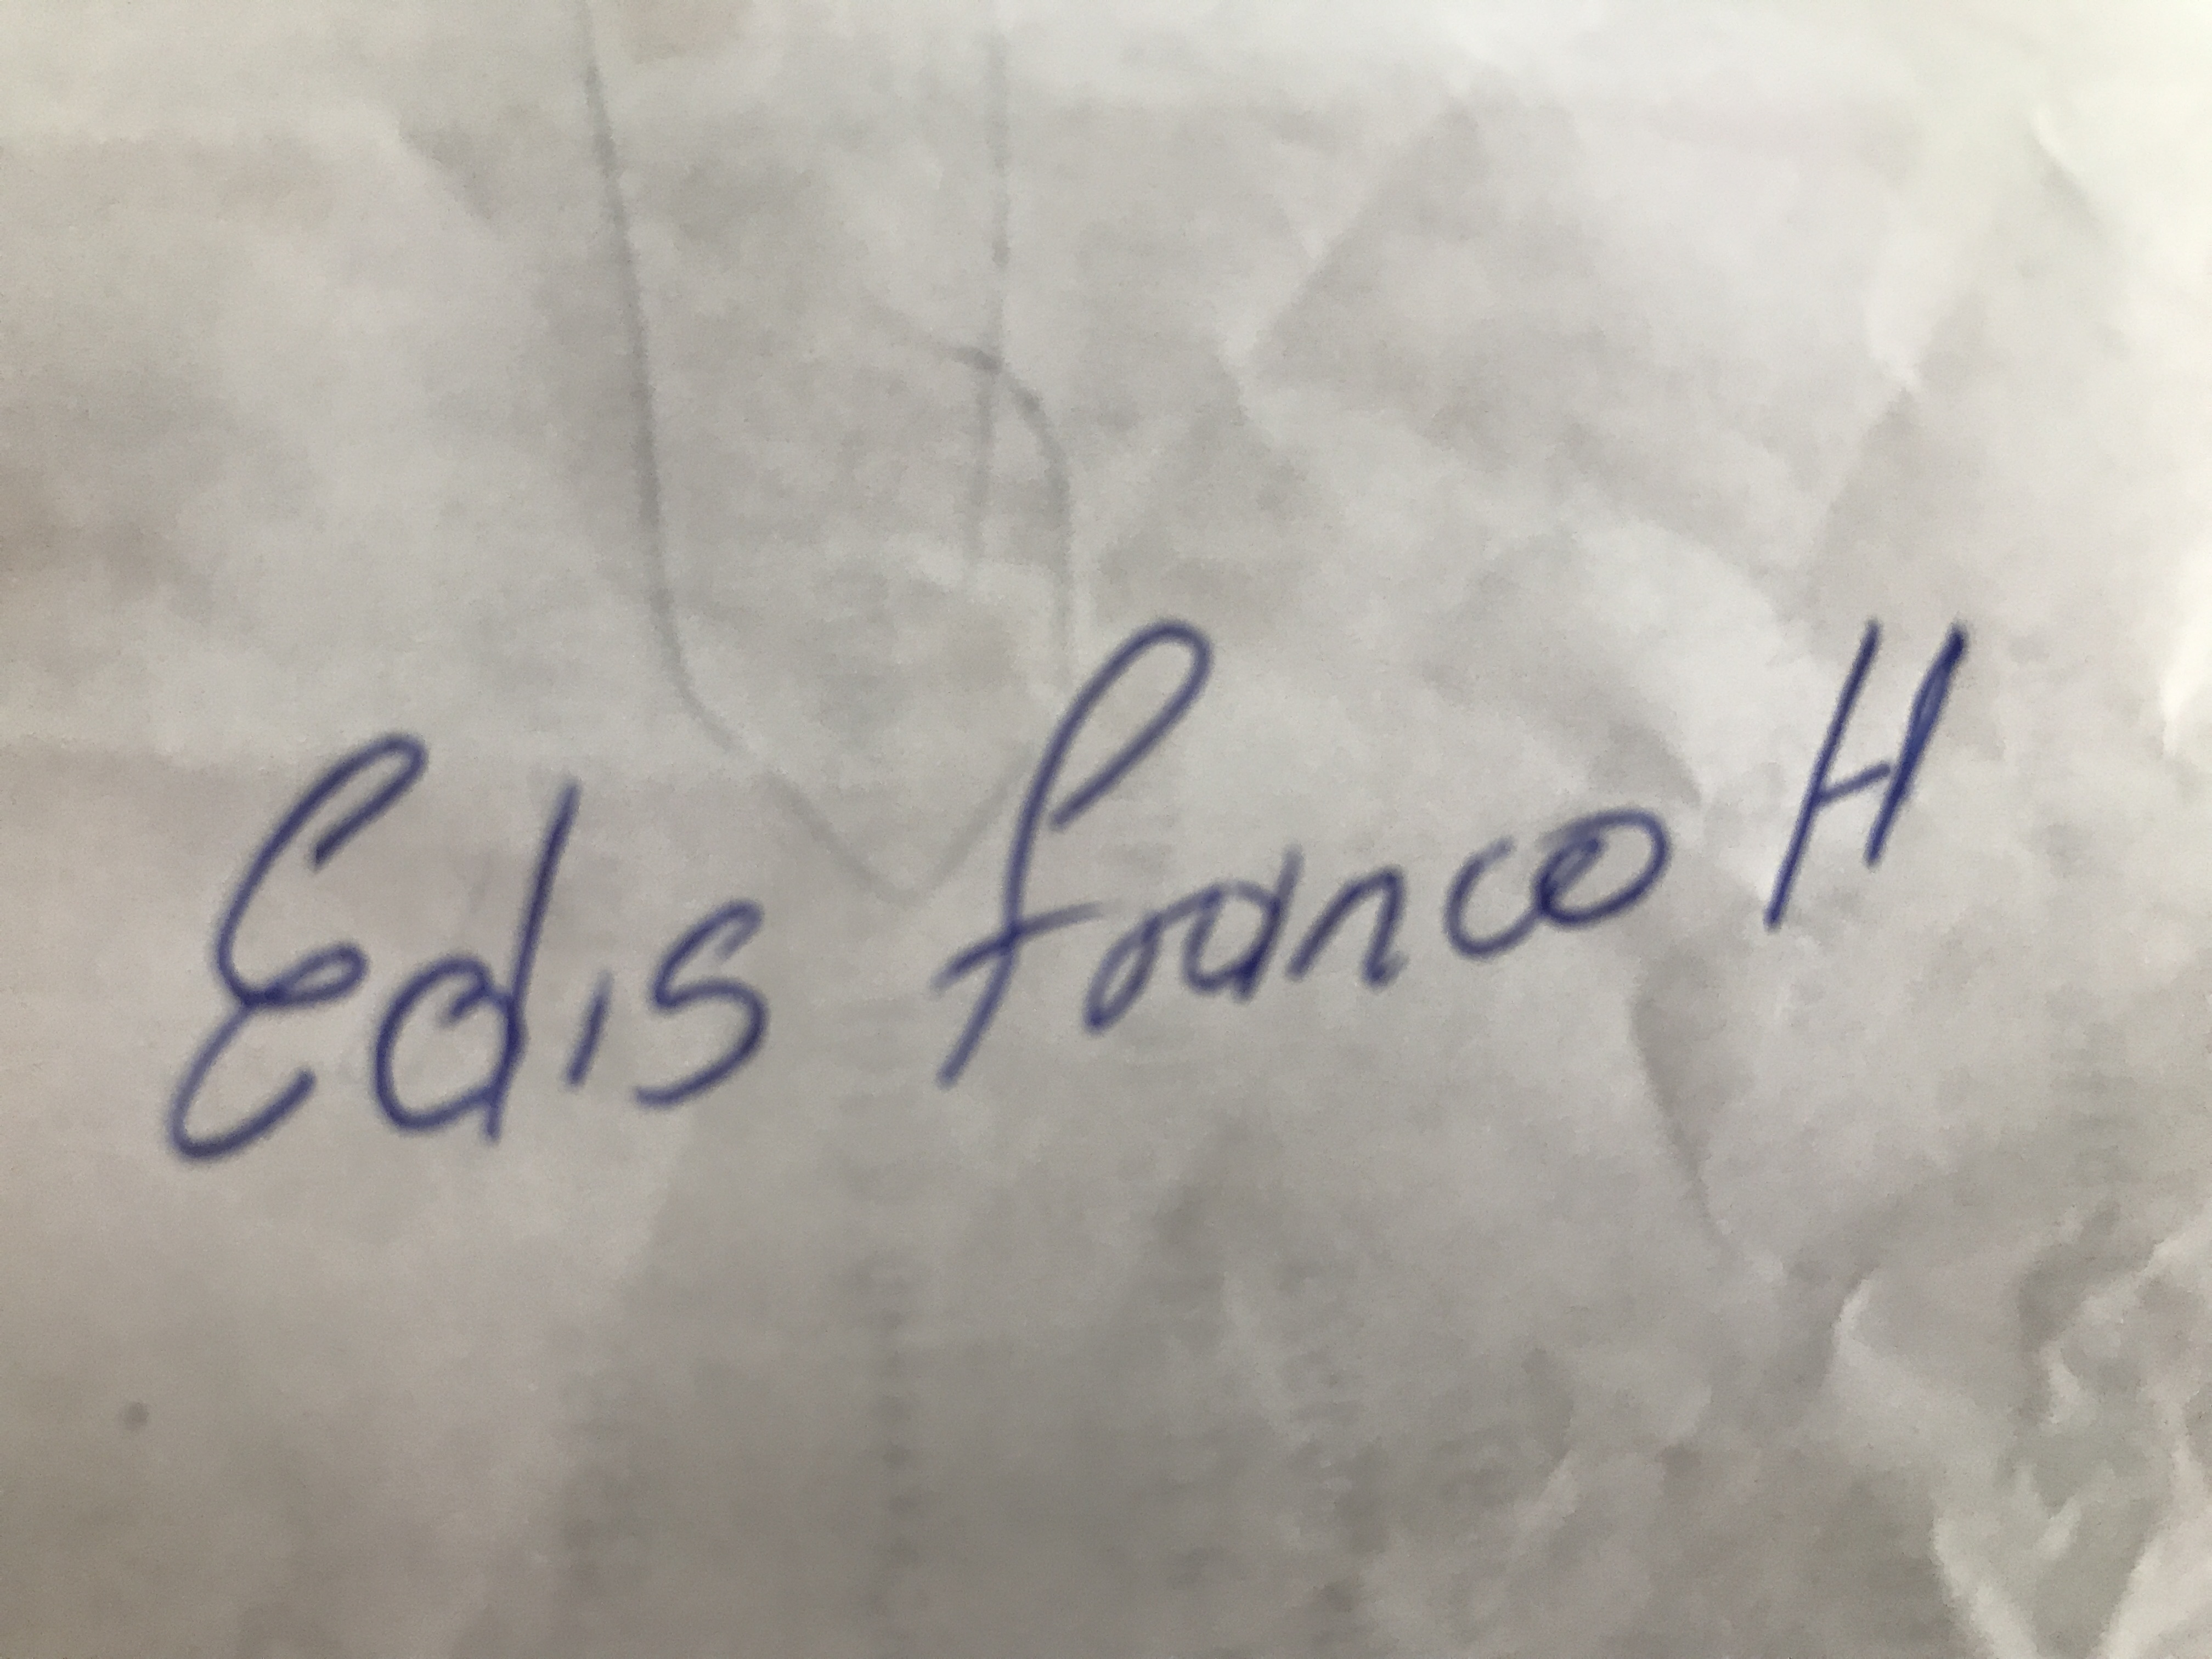 Edis Franco H